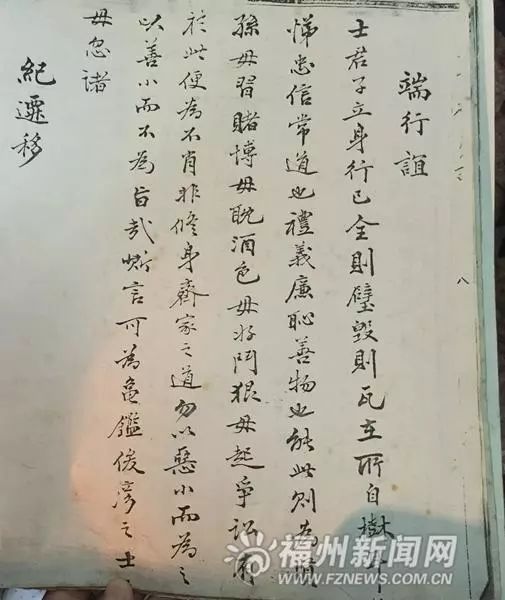 端行誼
士君子立身行己全則璧毀則瓦在所自樹耳
悌忠信常道也禮義廉恥善物也能此則為賢
孫毋習賭博毋耽酒色毋好鬥狠毋起爭訟有
於此便為不肖非修身齊家之道勿以惡小而為之
以善小而不為旨哉斯言可為龜鑑俊彥之士
毋忽諸
紀遷移
八
福州新闻网
WWW.FZNEWS.COM.CN